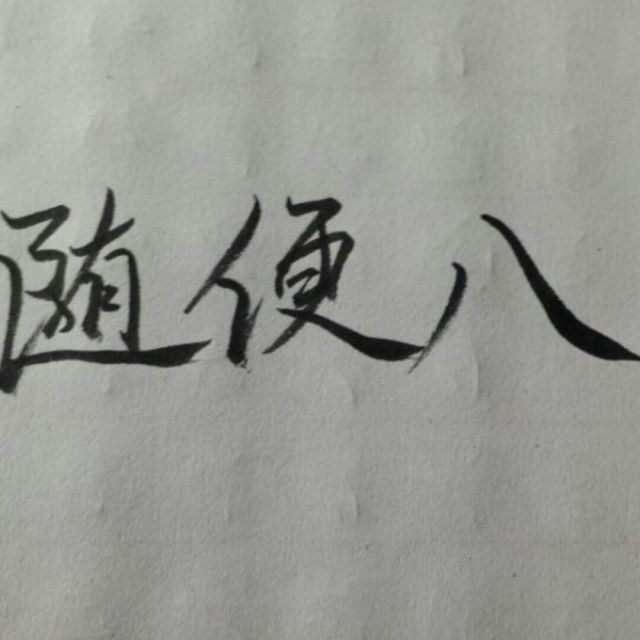 随便八